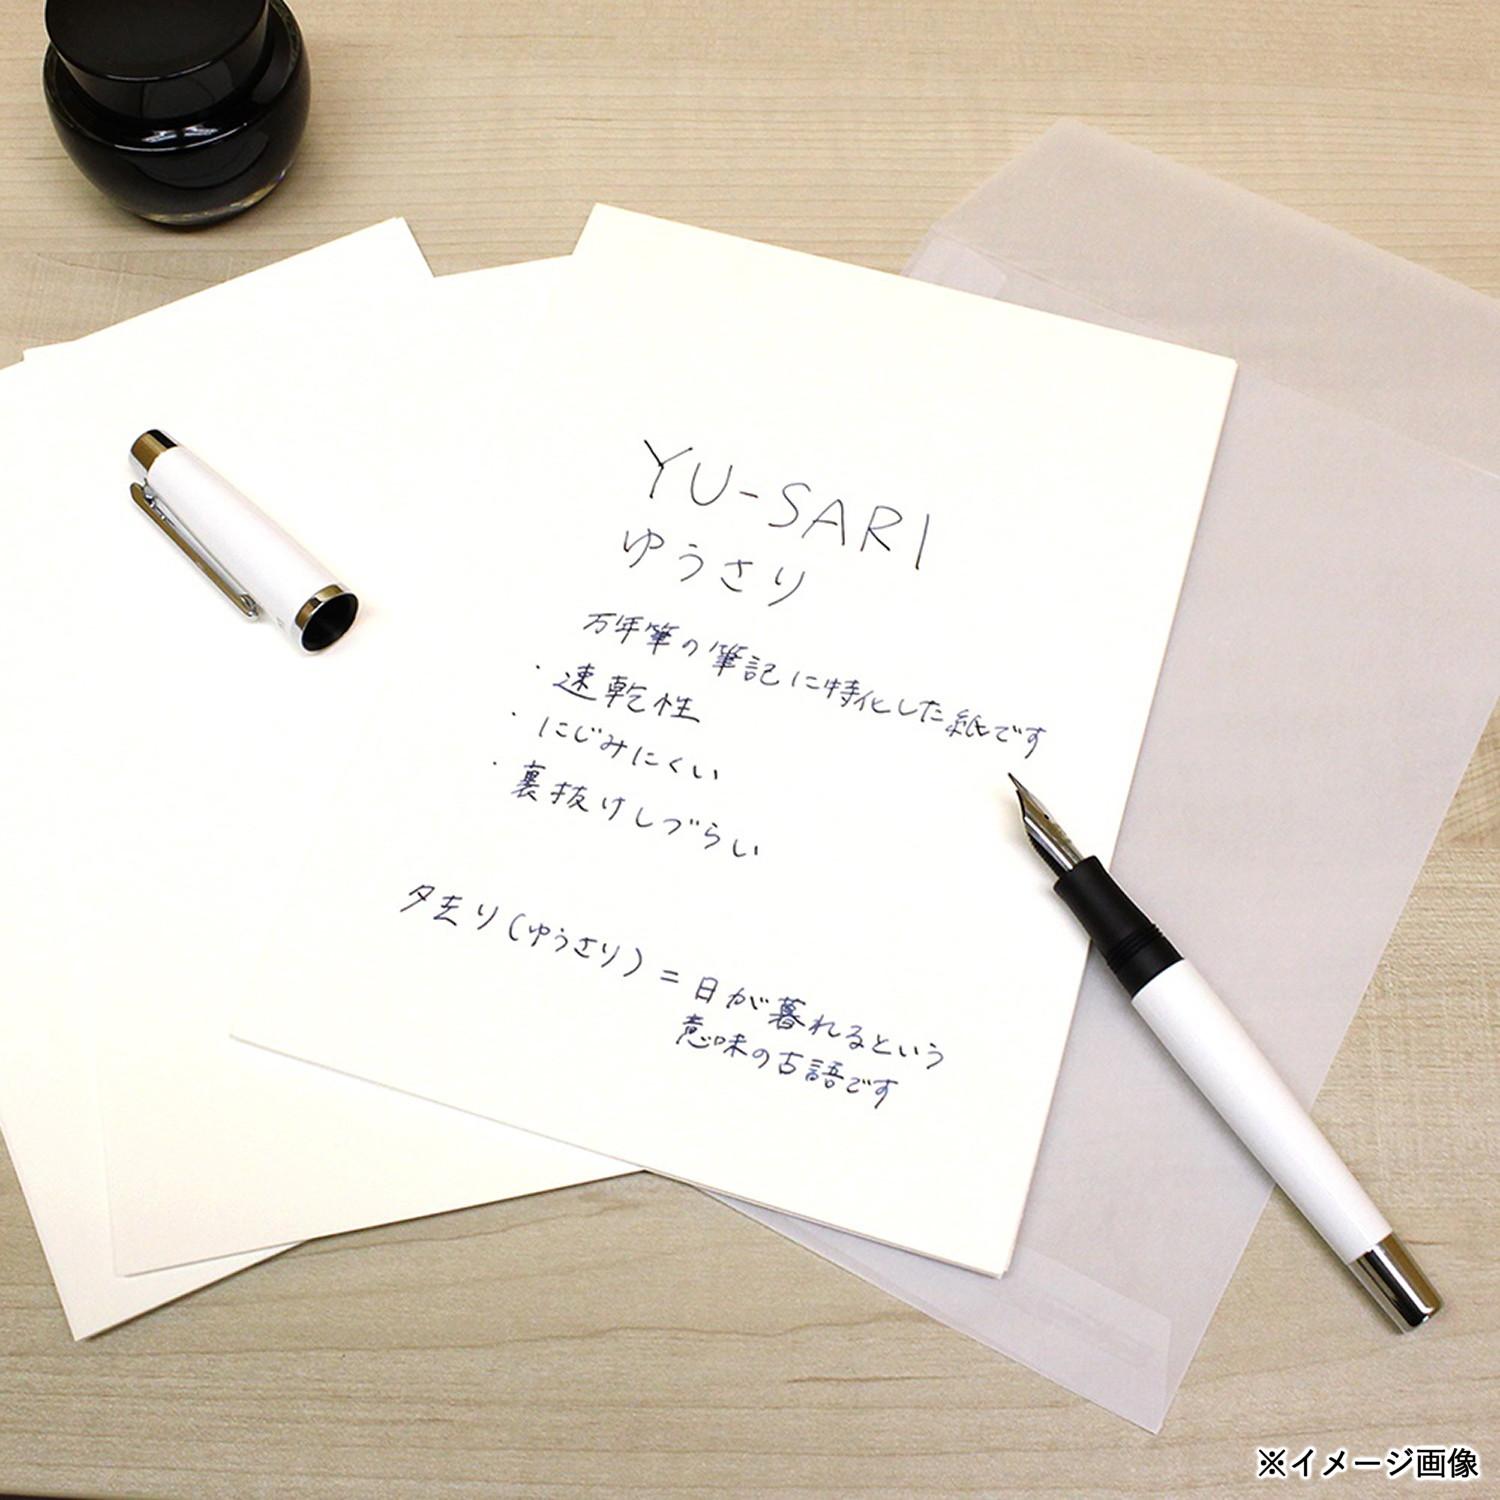 YU-SARI
ゆうさり
万年筆の筆記に特化した紙です
・速乾性
・にじみにくい
・裏抜けしづらい
夕去り(ゆうさり)=日が暮れるという
意味の古語です
※イメージ画像